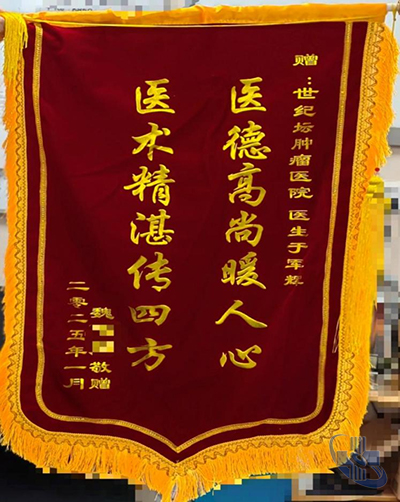 赠：世纪坛肿瘤医院 医生于军辉
医德高尚暖人心
医术精湛传四方
魏 敬赠
二零二五年一月